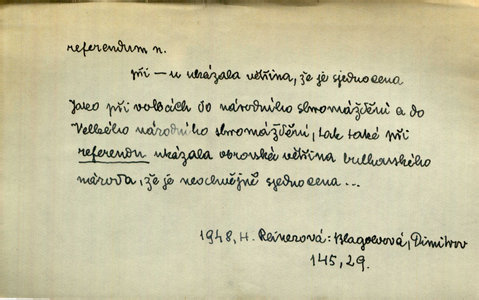 referendum n.
při — u ukázala většina, že je sjednocena
Jako při volbách do národního shromáždění a do
Velkého národního shromáždění, tak také při
referendu ukázala obrovská většina bulharského
národa, že je neochvějně sjednocena ...
1948, H. Reinerová: Blagoevová, Dimitrov
145, 29.